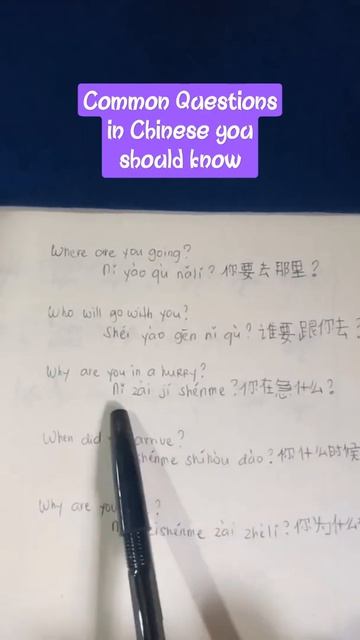 Common Questions
in Chinese you
should know
Where are you going?
Nǐ yào qù nǎlǐ? 你要去那里?
Who will go with you?
Shéi yào gēn nǐ qù? 谁要跟你去?
Why are you in a hurry?
Nǐ zài jí shénme? 你在急什么?
When did arrive?
shénme shíhòu dào? 你什么时候
Why are you ?
shénme zài zhèlǐ? 你为什么